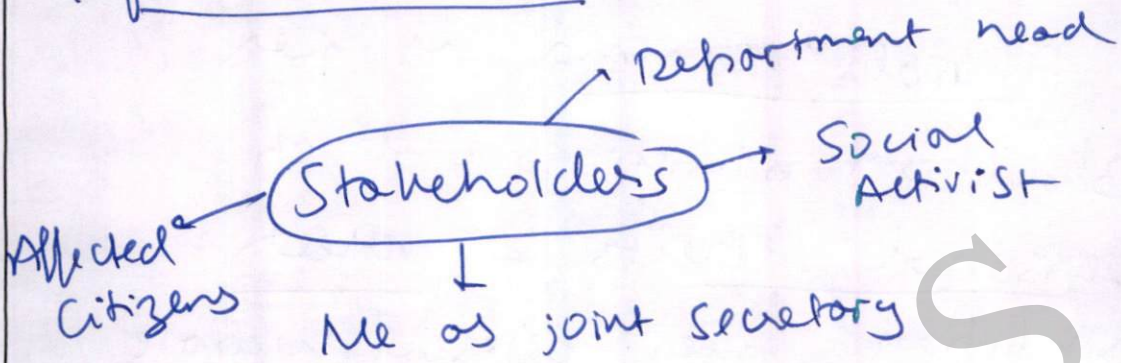 Department head
Stakeholders
Social
Activist
Affected
Citizens
Me as joint secretary
S